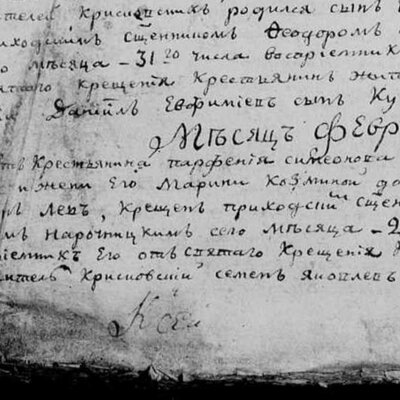 жителей Крисковскихъ родился сынъ
приходскимъ священникомъ Феодоромъ
мѣсяца - 31 го числа восприемник
святаго крещения крестьянин жит
Даниилъ Евфимиевъ сынъ Ку
Мѣсяцъ Февр
крестьянина парфения симеонова
и жени его Марини Козминой до
Левъ, крещен приходским священ
Нарочницкимъ сего мѣсяца - 2
приемникъ Его отъ святаго крещения
житель Крисковский семен яковлевъ
Ксен